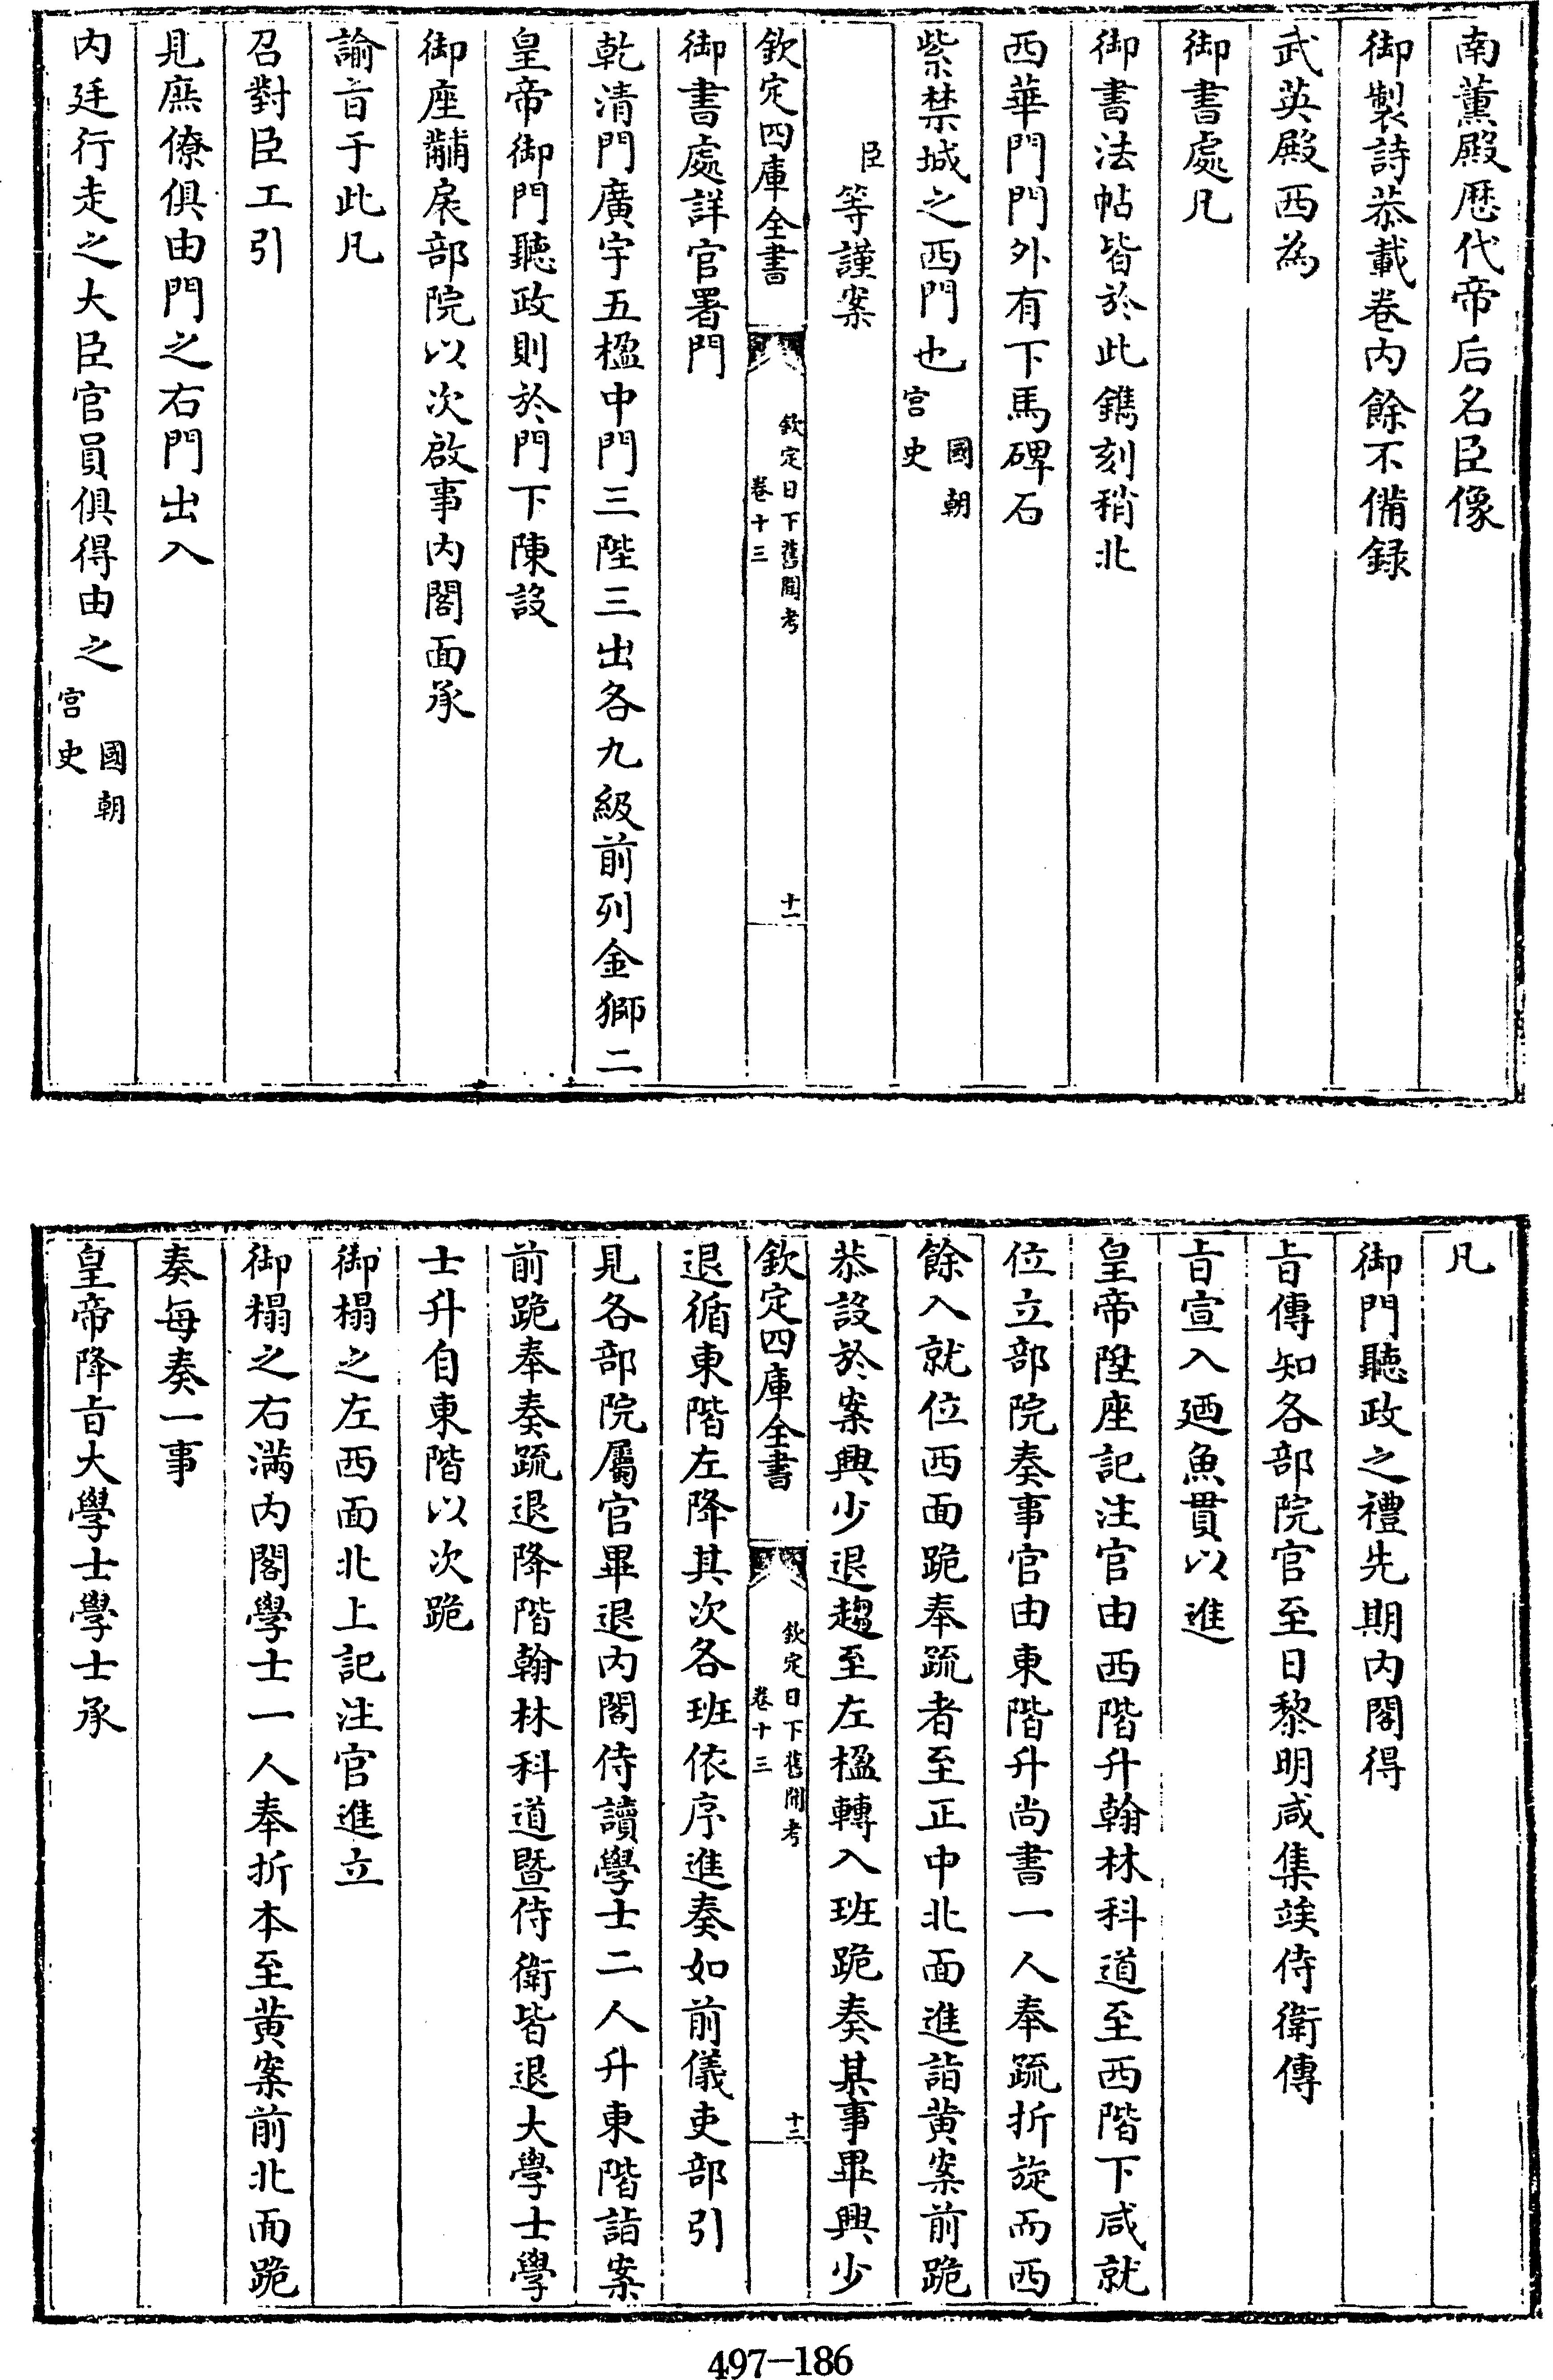 南薰殿歴代帝后名臣像
御製詩恭載卷内餘不備録
武英殿西為
御書處凡
御書法帖皆於此鐫刻稍北
西華門門外有下馬碑石
紫禁城之西門也國朝宫史
臣等謹案
欽定四庫全書
欽定日下舊聞考
卷十三
十一
御書處詳官署門
乾清門廣宇五楹中門三陛三出各九級前列金獅二
皇帝御門聽政則於門下陳設
御座黼扆部院以次啟事内閣面承
諭旨于此凡
召對臣工引
見庶僚俱由門之右門出入
内廷行走之大臣官員俱得由之國朝宫史
凡
御門聽政之禮先期内閣得
旨傳知各部院官至日黎明咸集竢侍衛傳
旨宣入廼魚貫以進
皇帝陞座記注官由西階升翰林科道至西階下咸就
位立部院奏事官由東階升尚書一人奉疏折旋而西
餘入就位西面跪奉疏者至正中北面進詣黄案前跪
恭設於案興少退趨至左楹轉入班跪奏某事畢興少
欽定四庫全書
欽定日下舊聞考
卷十三
十二
退循東階左降其次各班依序進奏如前儀吏部引
見各部院屬官畢退内閣侍讀學士二人升東階詣案
前跪奉奏疏退降階翰林科道暨侍衛皆退大學士學
士升自東階以次跪
御榻之左西面北上記注官進立
御榻之右滿内閣學士一人奉折本至黄案前北面跪
奏每奏一事
皇帝降旨大學士學士承
497-186